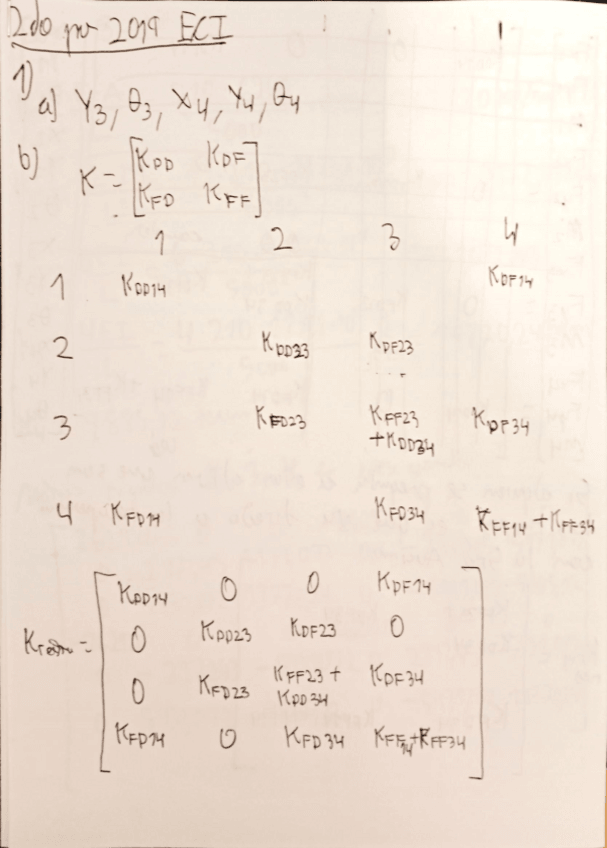 2do par 2019 ECI
1)
a) Y3, θ3, X4, Y4, θ4
b) K = [KDD KDF
KFD KFF]
1 2 3 4
1 KDD14 KDF14
2 KDD23 KDF23
3 KFD23 KFF23 +KDD34 KDF34
4 KFD14 KFD34 KFF14 + KFF34
= [KDD14 0 0 KDF14
0 KDD23 KDF23 0
0 KFD23 KFF23 + KDD34 KDF34
KFD14 0 KFD34 KFF14+KFF34]